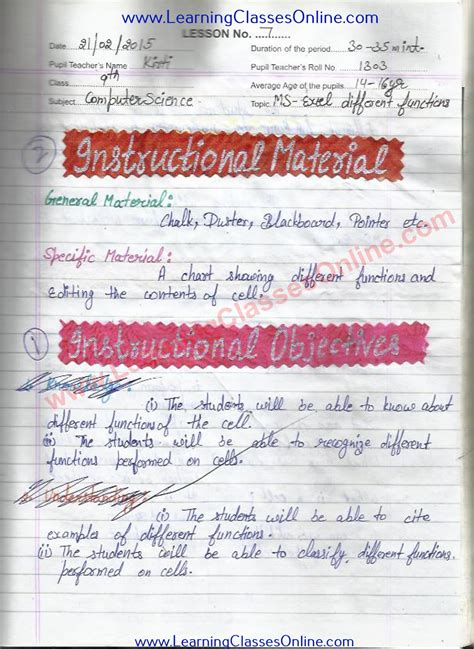 www.LearningClassesOnline.com
LESSON No. 7
Date 21/02/2015 Duration of the period 30-35 mint.
Pupil Teacher's Name Kirti Pupil Teacher's Roll No. 1303
Class 9th Average Age of the pupils 14-16yr
Subject Computer Science Topic MS-Exel different functions
2 Instructional Material
General Material:
Chalk, Duster, Blackboard, Pointer etc.
Specific Material:
A chart showing different functions and
Editing the contents of cell.
www.LearningClassesOnline.com
1 Instructional Objectives
Knowledge:
(i) The students will be able to know about
different functions of the cell.
(ii) The students will be able to recognize different
functions performed on cells.
Understanding:
(i) The students will be able to cite
examples of different functions.
(ii) The students will be able to classify different functions
performed on cells.
www.LearningClassesOnline.com